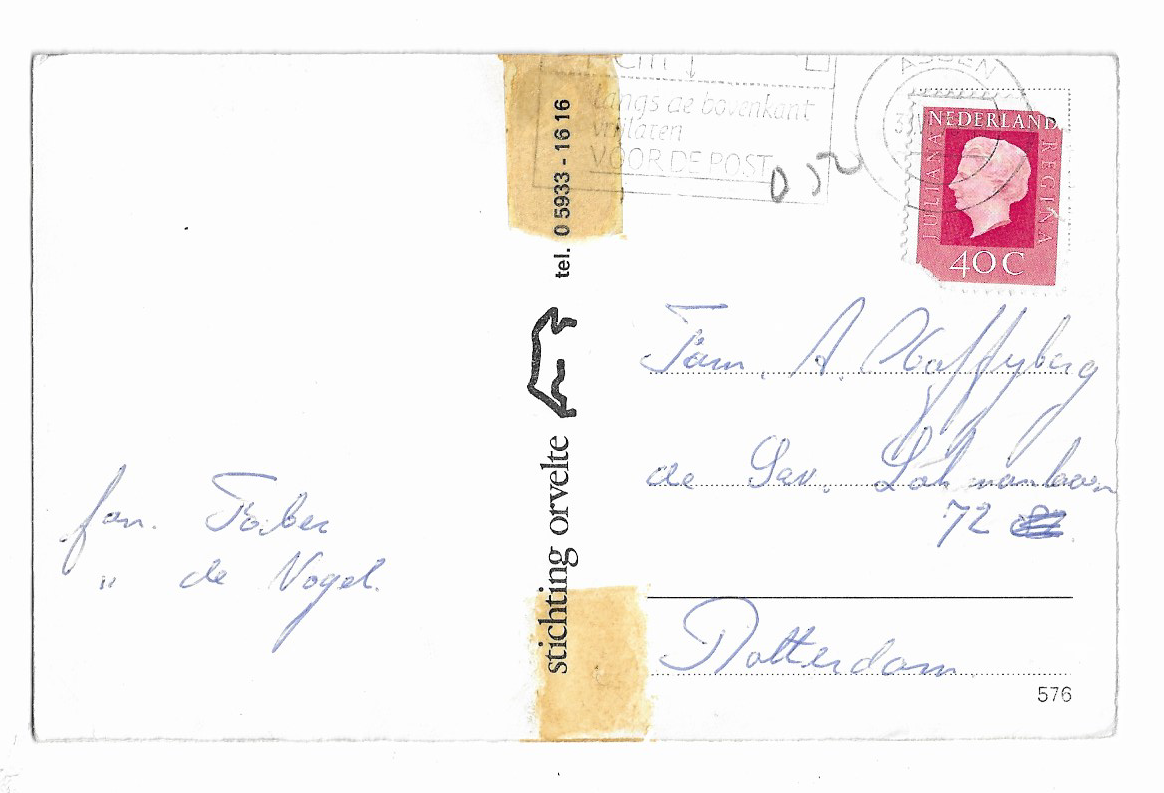 cm
langs de bovenkant
vrijlaten
VOOR DE POST
ASSEN
NEDERLAND
JULIANA REGINA
40 C
tel. 0 5933 - 16 16
stichting orvelte
Fam. A.
de Sav. Lohmanlaan
72
Rotterdam
fam.
" de Vogel.
576